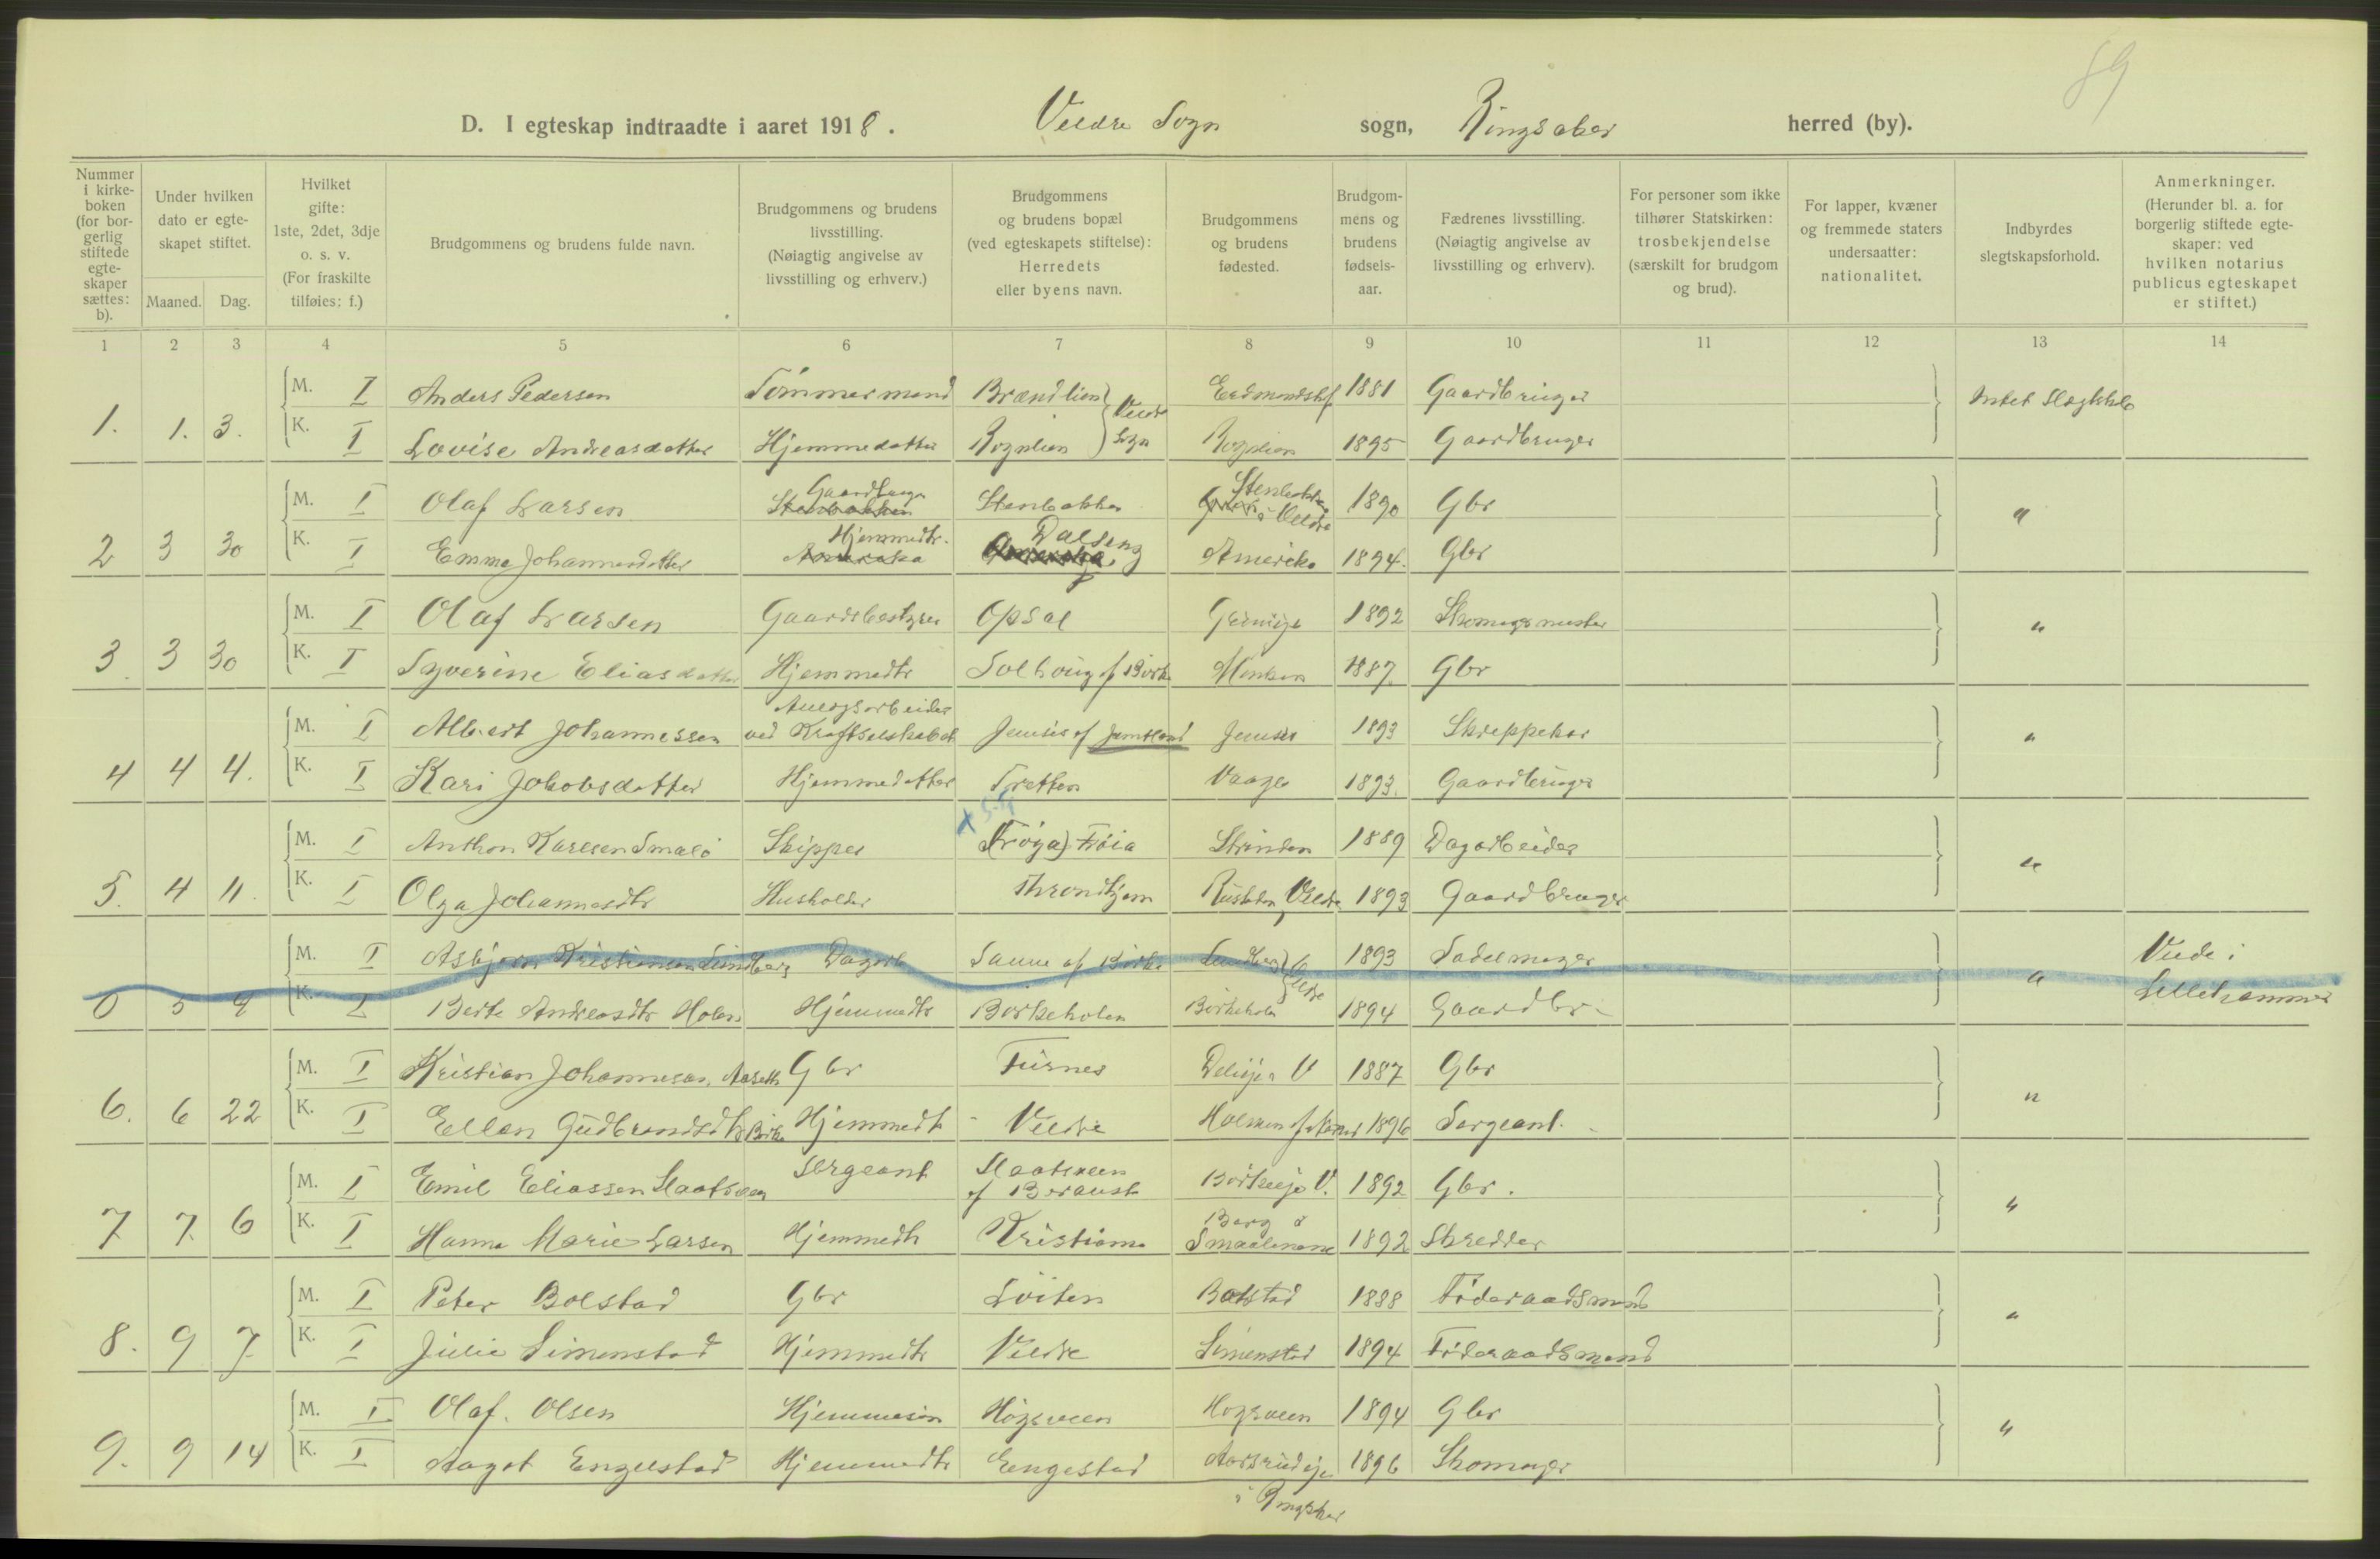 89
D. I egteskap indtraadte i aaret 1918. Veldre Sogn sogn, Ringsaker herred (by).
Nummer i kirke-boken (for bor-gerlig stiftede egte-skaper sættes: b).
Under hvilken dato er egte-skapet stiftet.
Maaned. Dag.
Hvilket gifte: 1ste, 2det, 3dje o. s. v. (For fraskilte tilføies: f.)
Brudgommens og brudens fulde navn.
Brudgommens og brudens livsstilling. (Nøiagtig angivelse av livsstilling og erhverv.)
Brudgommens og brudens bopæl (ved egteskapets stiftelse): Herredets eller byens navn.
Brudgommens og brudens fødested.
Brudgom-mens og brudens fødsels-aar.
Fædrenes livsstilling. (Nøiagtig angivelse av livsstilling og erhverv).
For personer som ikke tilhører Statskirken: trosbekjendelse (særskilt for brudgom og brud).
For lapper, kvæner og fremmede staters undersaatter: nationalitet.
Indbyrdes slegtskapsforhold.
Anmerkninger. (Herunder bl. a. for borgerlig stiftede egte-skaper: ved hvilken notarius publicus egteskapet er stiftet.)
1 2 3 4 5 6 7 8 9 10 11 12 13 14
M. I Anders Pedersen Tömmermand Brændlien 1881 Gaardbruger Intet Slægtskab
1. 1. 3. K. I Lovise Andreasdatter Hjemmedatter Rognlien Veldre Sogn Rognlien 1895 Gaardbruger
M. I Olaf Larsen Gaardbruger Stenbakken Stenbakken i Veldre 1890 Gbr "
2 3 30 K. I Emma Johannesdatter Hjemmedtr. Dalseng Amerika 1894. Gbr
M. I Olaf Larsen Gaardsbestyrer Opsal 1892 Skomagermester "
3 3 30 K. I Syverine Eliasdatter Hjemmedtr Solhoug af Birke 1887 Gbr
M. I Albert Johannessen Anlægsarbeider ved Kraftselskabet Jemtland 1893 Skreppekar "
4 4 4. K. I Kari Jakobsdatter Hjemmedatter Tretten Vaage 1893. Gaardbruger
M. I Anthon Karlsen Smalö Skipper (Fröya) Fröia Strinden 1889 Dagarbeider "
5. 4 11. K. I Olga Johannesdtr Husholder Throndhjem Veldre 1893 Gaardbruger
M. I Asbjørn Kristiansen Lundberg Dagarb Lundberg Veldre 1893 Sadelmager " Viede i
0 5 9 K. I Berte Andreasdtr Holen Hjemmedtr Birkeholen Birkeholen 1894 Gaardbr. Lillehammer
M. I Kristian Johannesen Aaseth Gbr Furnes V 1887 Gbr "
6. 6 22 K. I Ellen Gudbrandsdtr Birke Hjemmedtr Veldre 1896 Sergeant.
M. I Emil Eliassen Slaatsveen Sergeant Slaatsveen V. 1892 Gbr. "
7. 7. 6 K. I Hanna Marie Larsen Hjemmedtr Kristiania Berg i Smaalenene 1892 Skredder
M. I Peter Bolstad Gbr Löiten Bolstad 1888 Föderaadsmand "
8. 9 7 K. I Julie Simenstad Hjemmedtr Veldre Simenstad 1894 Föderaadsmand
M. I Olaf. Olsen Hjemmesön Högsveen Högsveen 1894 Gbr "
9. 9 14 K. I Aagot Engelstad Hjemmedtr Engestad 1896 Skomager
i Ringsaker